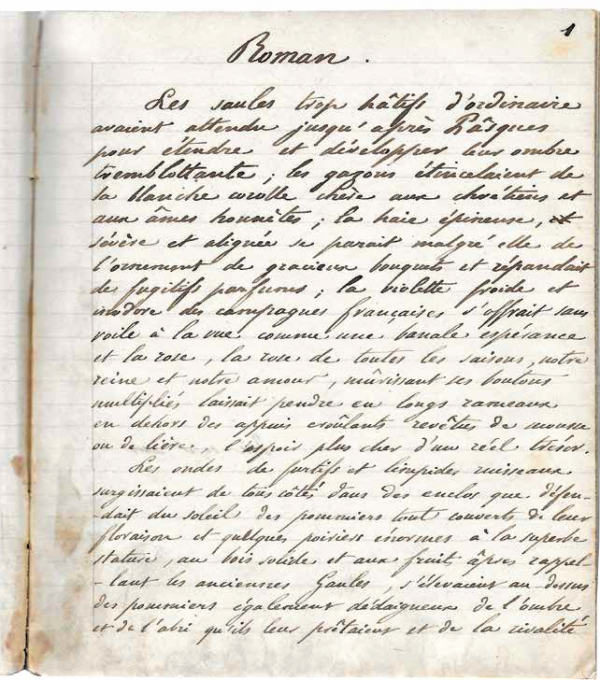 1
Roman.
Les saules trop hâtifs d'ordinaire
avaient attendu jusqu'après Pâques
pour étendre et développer leur ombre
tremblottante ; les gazons étincelaient de
la blanche corolle chère aux chrétiens et
aux âmes honnêtes ; la haie épineuse,
sévère et alignée se parait malgré elle de
l'ornement de gracieux bouquets et répandait
des fugitifs parfums ; la violette froide et
inodore des campagnes françaises s'offrait sans
voile à la vue comme une banale espérance
et la rose, la rose de toutes les saisons, notre
reine et notre amour, mûrissant ses boutons
multipliés laissait pendre en longs rameaux
en dehors des appuis croûlants revêtus de mousse
ou de lierre, l'espoir plus cher d'un réel trésor.
Les ondes de furtifs et limpides ruisseaux
surgissaient de tous côtés dans des enclos que défen-
-dait du soleil des pommiers tout couverts de leur
floraison et quelques poiriers énormes à la superbe
stature, au bois solide et aux fruits âpres rappel-
-lant les anciennes Gaules s'élevaient au dessus
des pommiers également dédaigneux de l'ombre
et de l'abri qu'ils leur prêtaient et de la rivalité